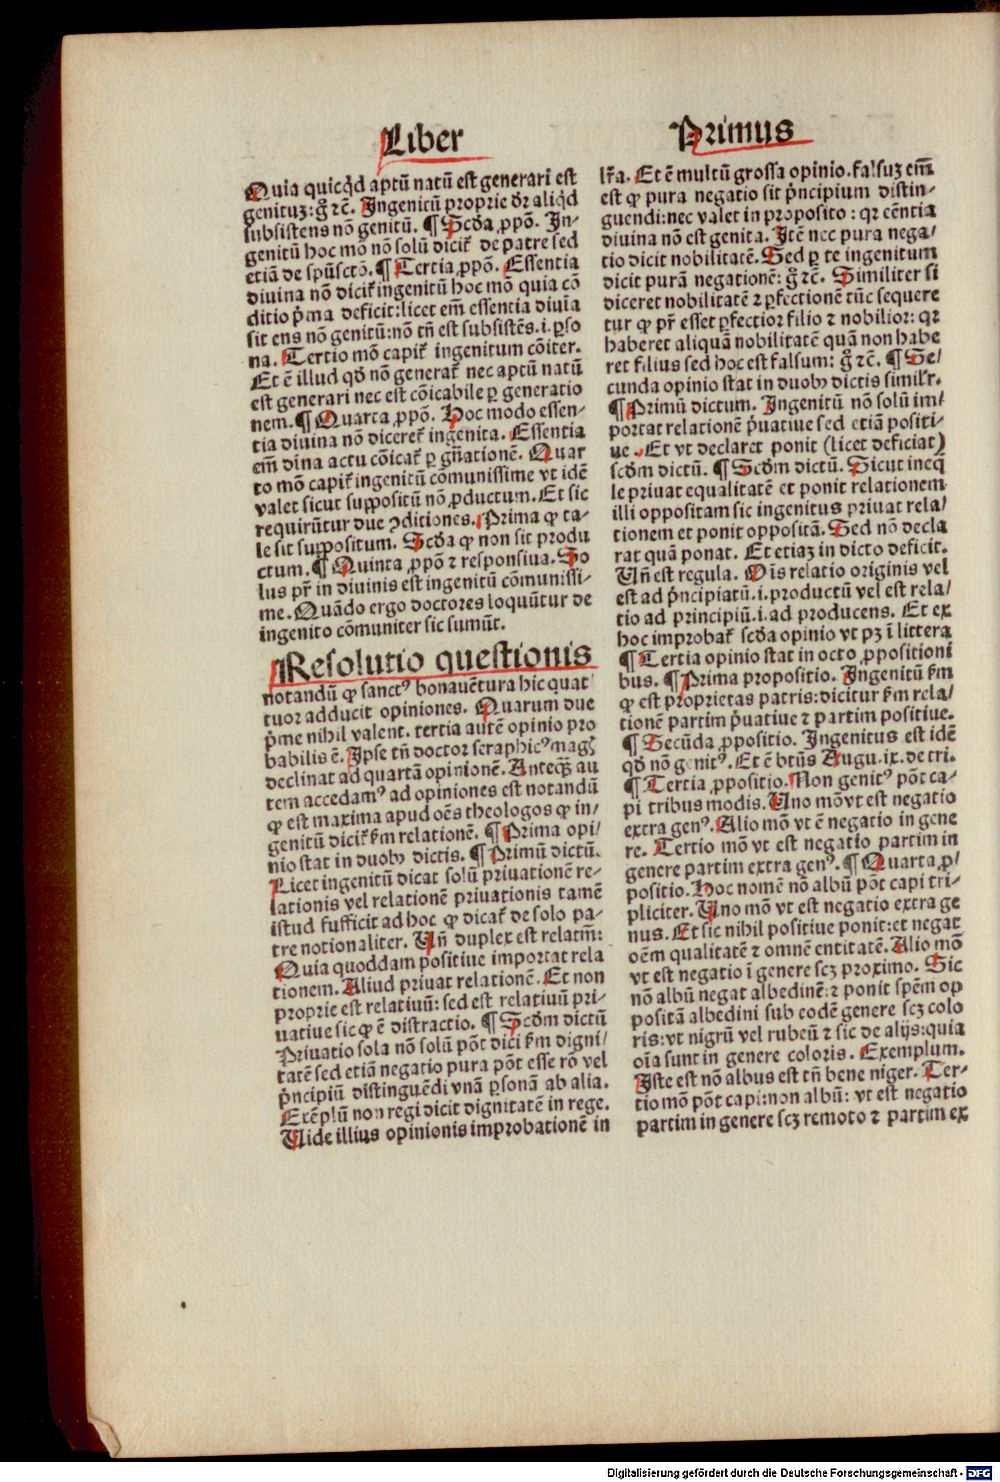 Liber
Primus
Quia quicq̃d aptũ natũ est generari est
genituꝫ: g̃ ⁊c̃. Ingenitũ proprie d̃r aliq̃d
subsistens nõ genitũ. ¶ Scd̃a ꝓpõ. In-
genitũ hoc mõ nõ solũ dicit̃ de patre sed
etiã de spũsctõ. ¶ Tertia ꝓpõ. Essentia
diuina nõ dicit̃ ingenitũ hoc mõ quia cõ
ditio p̃ma deficit: licet em̃ essentia diuĩa
sit ens nõ genitũ: nõ tñ est subsistẽs .i. ꝑso
na. Tertio mõ capit̃ ingenitum cõiter.
Et ẽ illud qd̃ nõ generat̃ nec aptũ natũ
est generari nec est cõicabile ꝑ generatio
nem. ¶ Quarta ꝓpõ. Hoc modo essen-
tia diuina nõ diceret̃ ingenita. Essentia
em̃ diña actu cõicat̃ ꝑ gñationẽ. Quar
to mõ capit̃ ingenitũ cõmunissime vt idẽ
valet sicut suppositũ nõ ꝓductum. Et sic
requirũtur due ꝯditiones. Prima ꝙ ta-
le sit suppositum. Scd̃a ꝙ non sit produ
ctum. ¶ Quinta ꝓpõ ⁊ responsiua. So
lus pr̃ in diuinis est ingenitũ cõmunissi-
me. Quãdo ergo doctores loquũtur de
ingenito cõmuniter sic sumũt.
Resolutio questionis
notandũ ꝙ sanctꝰ bonauẽtura hic quat
tuor adducit opiniones. Quarum due
p̃me nihil valent. tertia autẽ opinio pro
babilis ẽ. Ipse tñ doctor seraphicꝰ mag̃
declinat ad quartã opinionẽ. Anteq̃ꝫ au
tem accedamꝰ ad opiniones est notandũ
ꝙ est maxima apud oẽs theologos ꝙ in-
genitũ dicit̃ ẜm relationẽ. ¶ Prima opi/
nio stat in duobꝫ dictis. ¶ Primũ dictũ.
Licet ingenitũ dicat solũ priuationẽ re-
lationis vel relationẽ priuationis tamẽ
istud sufficit ad hoc ꝙ dicat̃ de solo pa-
tre notionaliter. Uñ duplex est relatiũ:
Quia quoddam positiue importat rela
tionem. Aliud priuat relationẽ. Et non
proprie est relatiuũ: sed est relatiuũ pri-
uatiue sic ꝙ ẽ distractio. ¶ Scd̃m dictũ
Priuatio sola nõ solũ põt dici ẜm digni/
tatẽ sed etiã negatio pura põt esse rõ vel
p̃ncipiũ distinguẽdi vnã ꝑsonã ab alia.
Exẽplũ non regi dicit dignitatẽ in rege.
Uide illius opinionis improbationẽ in
lr̃a. Et ẽ multũ grossa opinio. falsuꝫ em̃
est ꝙ pura negatio sit p̃ncipium distin-
guendi: nec valet in proposito: qr eẽntia
diuina nõ est genita. Itẽ nec pura nega/
tio dicit nobilitatẽ. Sed ꝑ te ingenitum
dicit purã negationẽ: g̃ ⁊c̃. Similiter si
diceret nobilitatẽ ⁊ ꝑfectionẽ tũc sequere
tur ꝙ pr̃ esset ꝑfectior filio ⁊ nobilior: qr
haberet aliquã nobilitatẽ quã non habe
ret filius sed hoc est falsum: g̃ ⁊c̃. ¶ Se/
cunda opinio stat in duobꝫ dictis similr̃.
¶ Primũ dictum. Ingenitũ nõ solũ im/
portat relationẽ p̃uatiue sed etiã positi-
ue. Et vt declaret ponit (licet deficiat)
scd̃m dictũ. ¶ Scd̃m dictũ. Sicut ineq̃
le priuat equalitatẽ et ponit relationem
illi oppositam sic ingenitus priuat rela/
tionem et ponit oppositã. Sed nõ decla
rat quã ponat. Et etiaꝫ in dicto deficit.
Uñ est regula. Oĩs relatio originis vel
est ad p̃ncipiatũ .i. productũ vel est rela/
tio ad principiũ .i. ad producens. Et ex
hoc improbat̃ scd̃a opinio vt pꝫ ĩ littera
¶ Tertia opinio stat in octo ꝓpositioni
bus. ¶ Prima propositio. Ingenitũ ẜm
ꝙ est proprietas patris: dicitur ẜm rela/
tionẽ partim p̃uatiue ⁊ partim positiue.
¶ Secũda ꝓpositio. Ingenitus est idẽ
qd̃ nõ genitꝰ. Et ẽ btũs Augu. ix. de tri.
¶ Tertia ꝓpositio. Non genitꝰ põt ca-
pi tribus modis. Uno mõ vt est negatio
extra genꝰ. Alio mõ vt ẽ negatio in gene
re. Tertio mõ vt est negatio partim in
genere partim extra genꝰ. ¶ Quarta ꝓ/
positio. Hoc nomẽ nõ albũ põt capi tri-
pliciter. Uno mõ vt est negatio extra ge
nus. Et sic nihil positiue ponit: et negat
oẽm qualitatẽ ⁊ omnẽ entitatẽ. Alio mõ
vt est negatio ĩ genere scꝫ proximo. Sic
nõ albũ negat albedinẽ: ⁊ ponit spẽm op
positã albedini sub eodẽ genere scꝫ colo
ris: vt nigrũ vel rubeũ ⁊ sic de alijs: quia
oĩa sunt in genere coloris. Exemplum.
Iste est nõ albus est tñ bene niger. Ter-
tio mõ põt capi: non albũ: vt est negatio
partim in genere scꝫ remoto ⁊ partim ex
Digitalisierung gefördert durch die Deutsche Forschungsgemeinschaft - DFG